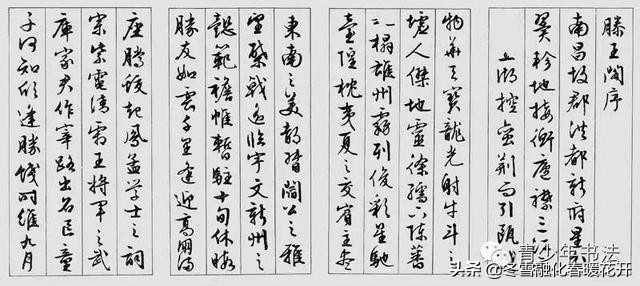 滕王閣序
南昌故郡洪都新府星分
翼軫地接衡廬襟三江
五湖控蠻荊而引甌越
物華天寶龍光射牛斗之
墟人傑地靈徐孺下陳蕃
之榻雄州霧列俊彩星馳
臺隍枕夷夏之交賓主盡
東南之美都督閻公之雅
望棨戟遙臨宇文新州之
懿範襜帷暫駐十旬休暇
勝友如雲千里逢迎高朋滿
座騰蛟起鳳孟學士之詞
宗紫電清霜王將軍之武
庫家君作宰路出名區童
子何知躬逢勝餞時維九月
青少年书法
头条 @冬雪融化春暖花开